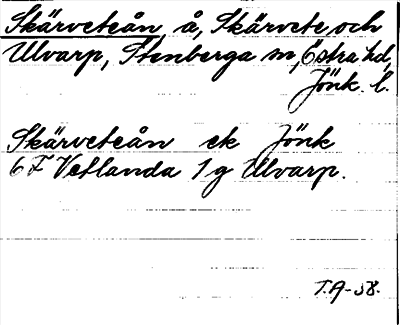 Skärveteån, å, Skärvete och
Ulvarp, Stenberga sn, Östra hd,
Jönk. l.
Skärveteån ek Jönk
6 F Vetlanda 1 g Ulvarp.
T.A-58.